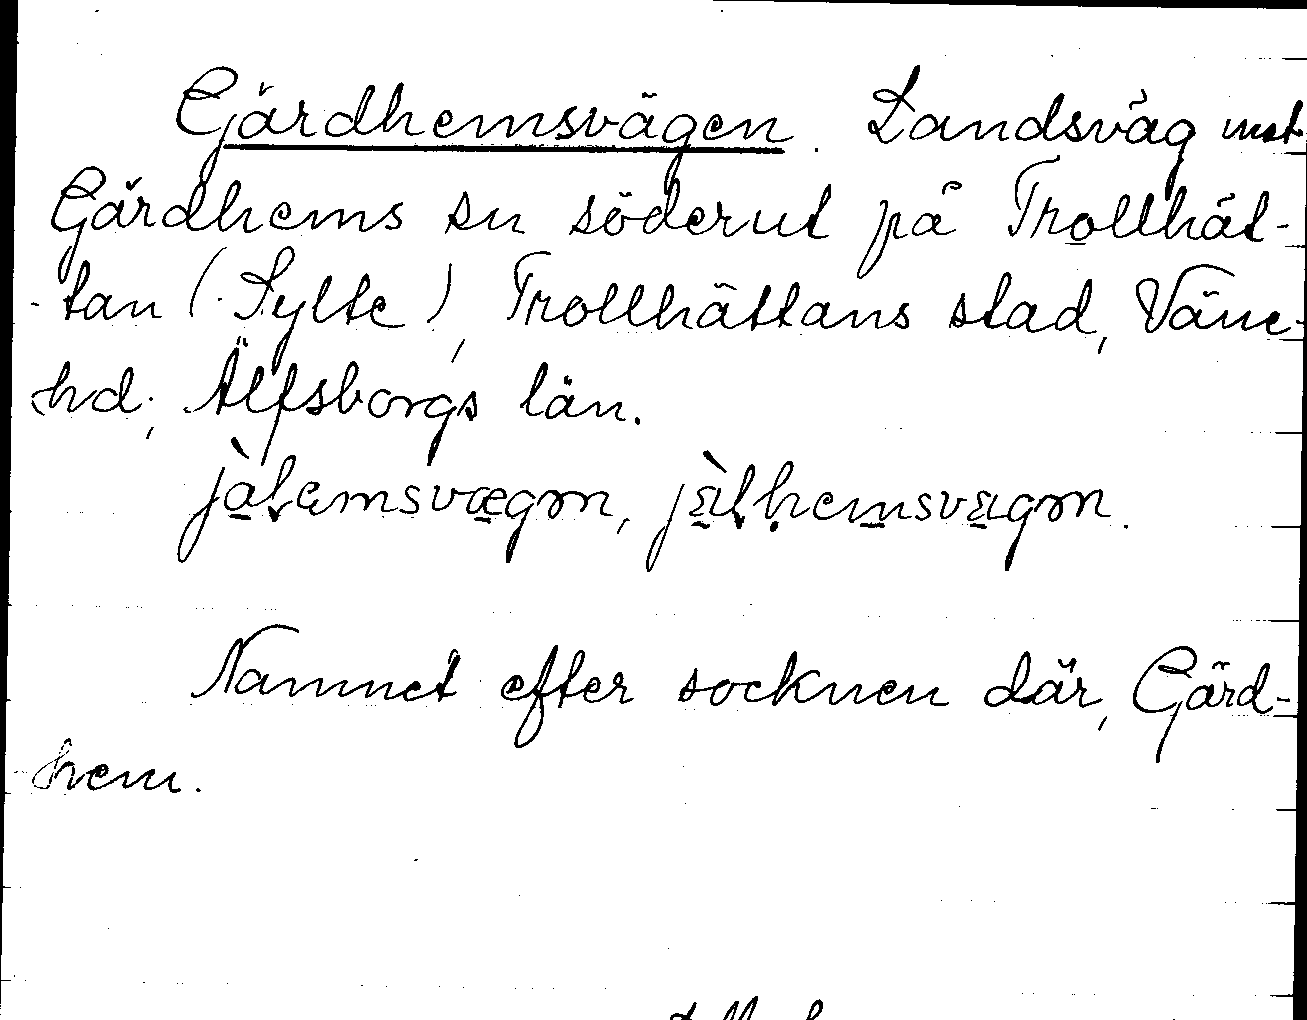 Gärdhemsvägen. Landsväg mot
Gärdhems sn söderut på Trollhät-
tan (Sylte), Trollhättans stad, Väne
hd, Älfsborgs län.
Namnet efter socknen där, Gärd-
hem.